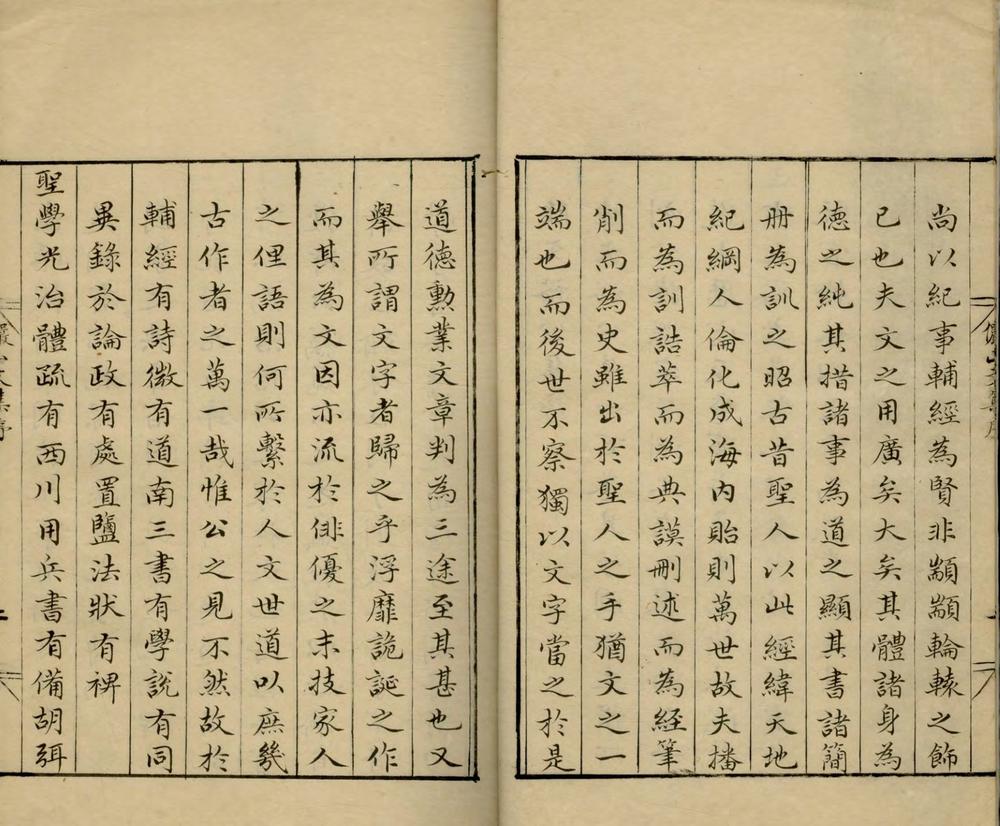 尚以紀事輔經為賢非顓顓輪轅之飾
已也夫文之用廣矣大矣其體諸身為
德之純其措諸事為道之顯其書諸簡
冊為訓之昭古昔聖人以此經緯天地
紀綱人倫化成海內貽則萬世故夫播
而為訓誥萃而為典謨刪述而為經筆
削而為史雖出於聖人之手猶文之一
端也而後世不察獨以文字當之於是
道德勲業文章判為三途至其甚也又
舉所謂文字者歸之乎浮靡詭誕之作
而其為文因亦流於俳優之末技家人
之俚語則何所繫於人文世道以庶幾
古作者之萬一哉惟公之見不然故於
輔經有詩微有道南三書有學說有同
異錄於論政有處置鹽法狀有裨
聖學光治體疏有西川用兵書有備胡弭